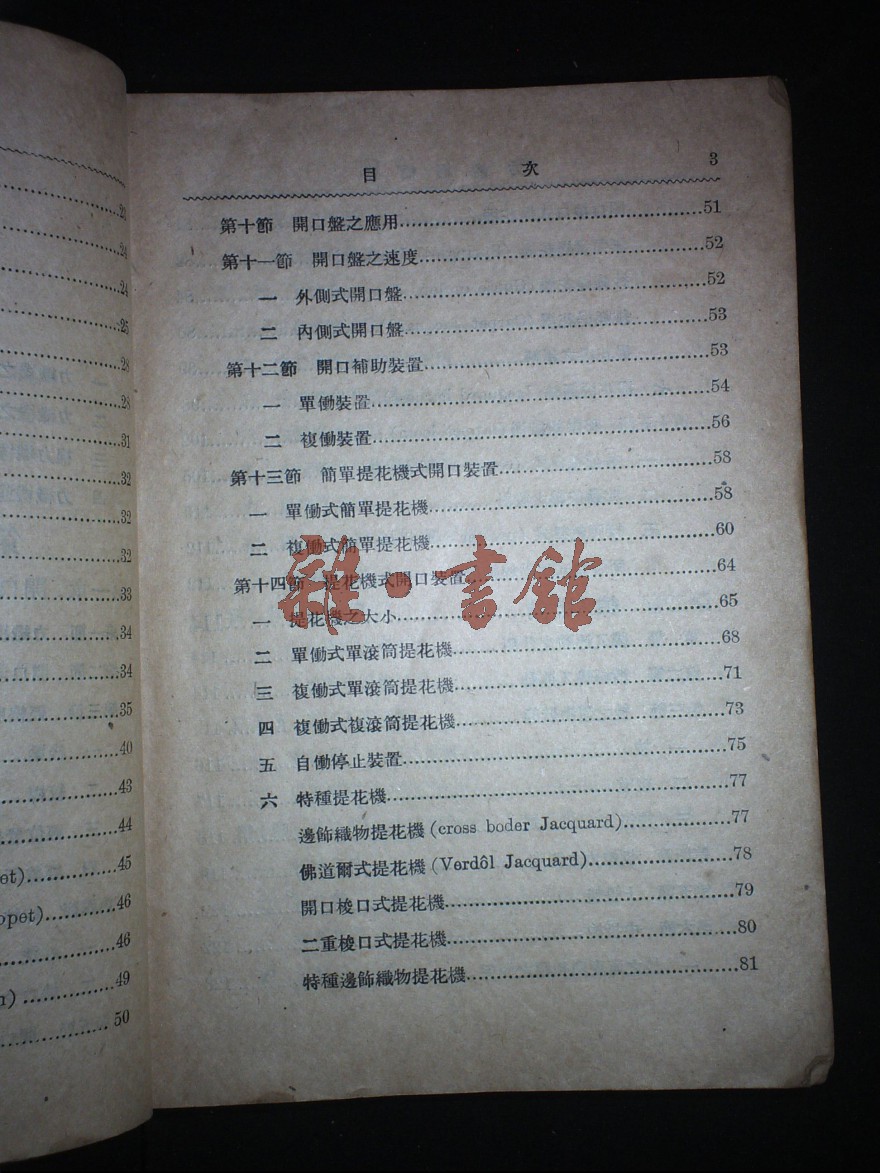 23
24
24
25
28
28
31
32
32
32
33
34
34
35
40
43
44
et)..............45
opet)..........46
46
49
50
目 次 3
第十節 開口盤之應用..............................51
第十一節 開口盤之速度..............................52
一 外側式開口盤..............................52
二 內側式開口盤..............................53
第十二節 開口補助裝置..............................53
一 單働裝置..............................54
二 複働裝置..............................56
第十三節 簡單提花機式開口裝置..............................58
一 單働式簡單提花機..............................58
二 複働式簡單提花機..............................60
第十四節 提花機式開口裝置..............................64
一 提花機之大小..............................65
二 單働式單滾筒提花機..............................68
三 複働式單滾筒提花機..............................71
四 複働式複滾筒提花機..............................73
五 自働停止裝置..............................75
六 特種提花機..............................77
邊飾織物提花機(cross boder Jacquard)..............77
佛道爾式提花機(Verdôl Jacquard)..................78
開口梭口式提花機..............................79
二重梭口式提花機..............................80
特種邊飾織物提花機..............................81
雜·書館